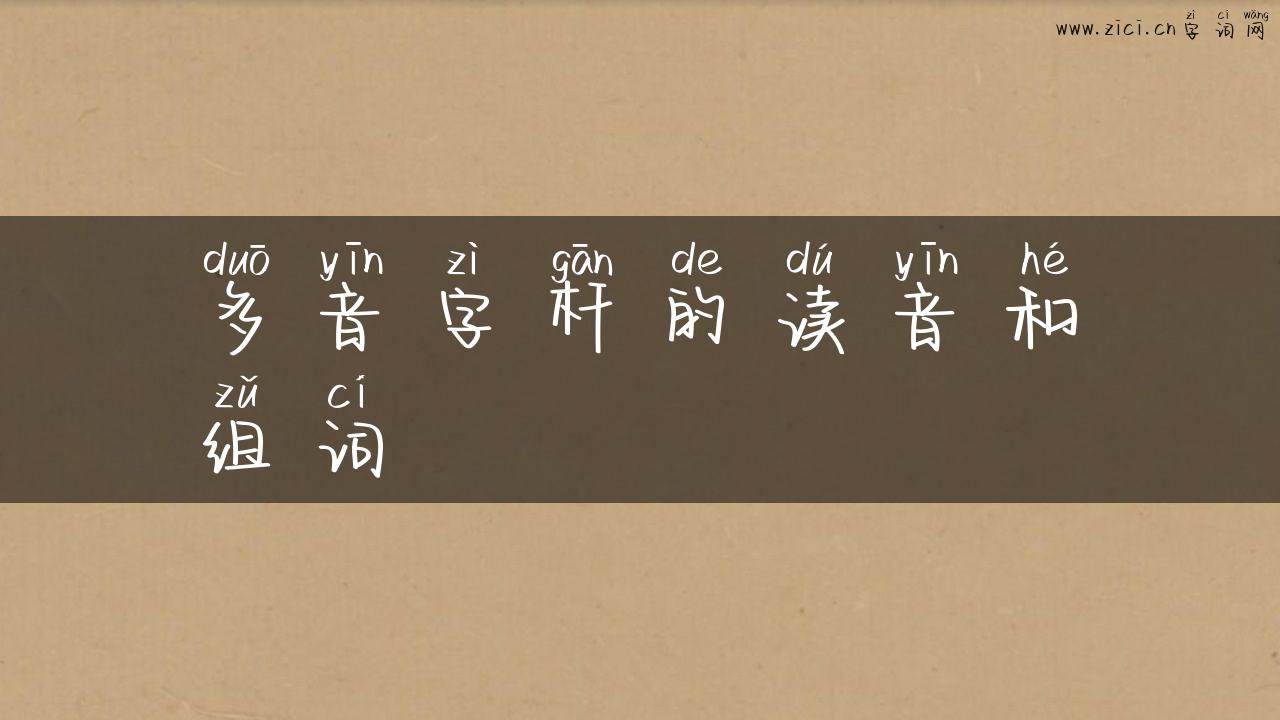 zì cí wǎng
www.zici.cn 字 词 网
duō yīn zì gān de dú yīn hé
多 音 字 杆 的 读 音 和
zǔ cí
组 词